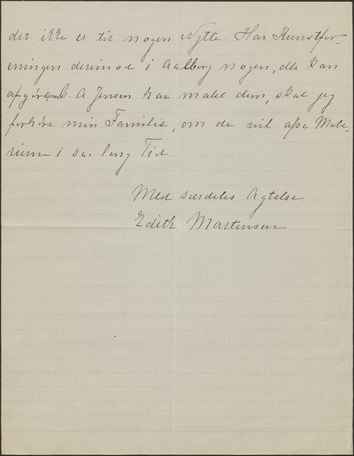 det ikke er til nogen Nytte. Har Kunstfor-
eningen derimod i Aalborg nogen, der kan
A Jensen har malet dem, skal jeg
min Familie, om de vil
i saa lang Tid
Med særdeles Agtelse
Edith Mortensen